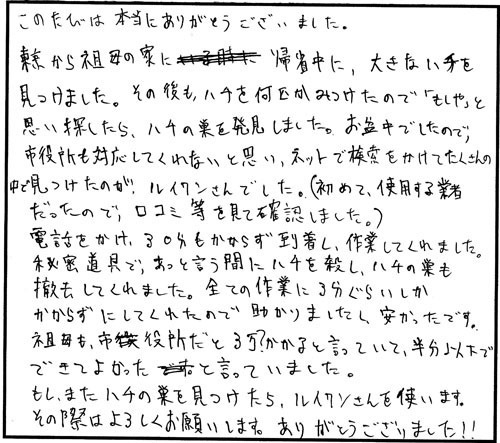 このたびは本当にありがとうございました。
東京から祖母の家に帰省中に、大きなハチを
見つけました。その後も、ハチを何匹かみつけたので「もしや」と
思い探したら、ハチの巣を発見しました。お盆中でしたので、
市役所も対応してくれないと思い、ネットで検索をかけてたくさんの
中で見つけたのが、ルイワンさんでした。(初めて、使用する業者
だったので、口コミ等を見て確認しました。)
電話をかけ、30分もかからず到着し、作業してくれました。
秘密道具で、あっと言う間にハチを殺し、ハチの巣も
撤去してくれました。全ての作業に3分ぐらいしか
かからずにしてくれたので助かりましたし、安かったです。
祖母も、市役所だと3万?かかると言っていて、半分以下で
できてよかったと言っていました。
もし、またハチの巣を見つけたら、ルイワンさんを使います。
その際はよろしくお願いします。ありがとうございました!!